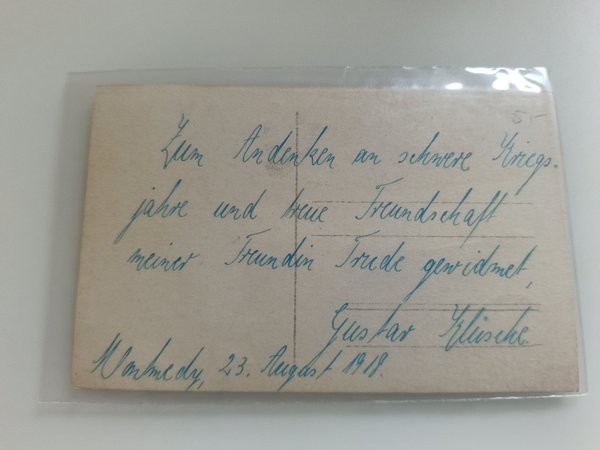 Zum Andenken an schwere Kriegs-
jahre und treue Freundschaft
meiner Freundin Friede gewidmet,
Gustav
23. August 1918.